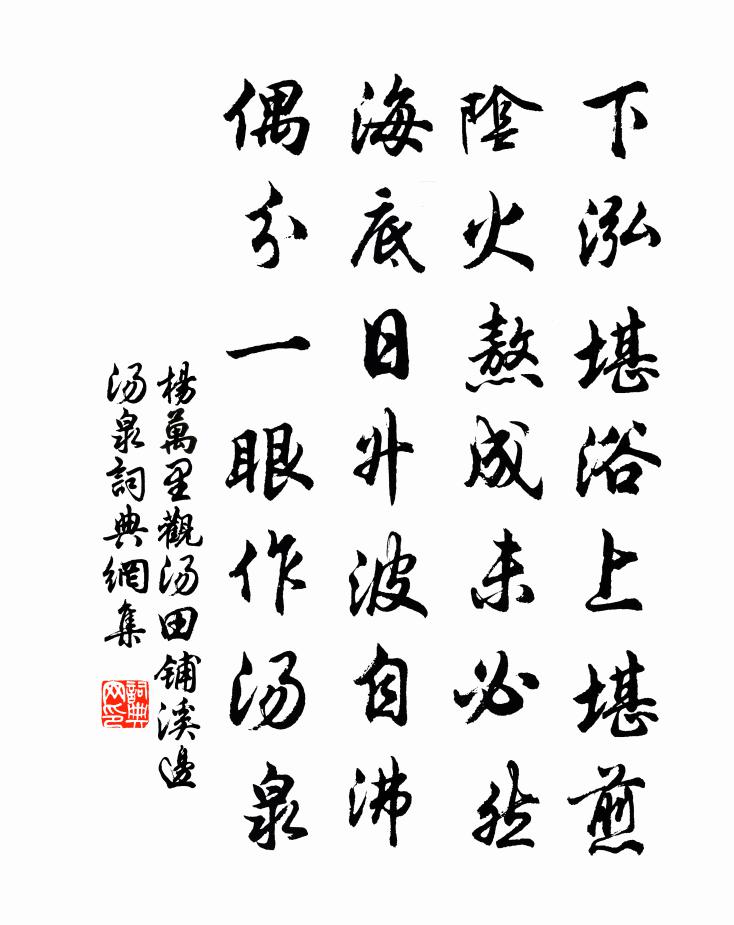 下泓堪浴上堪煎
陰火熬成未必然
海底日升波自沸
偶分一眼作汤泉
楊萬里觀汤田鋪溪邊
汤泉詞典網集
詞典
网印